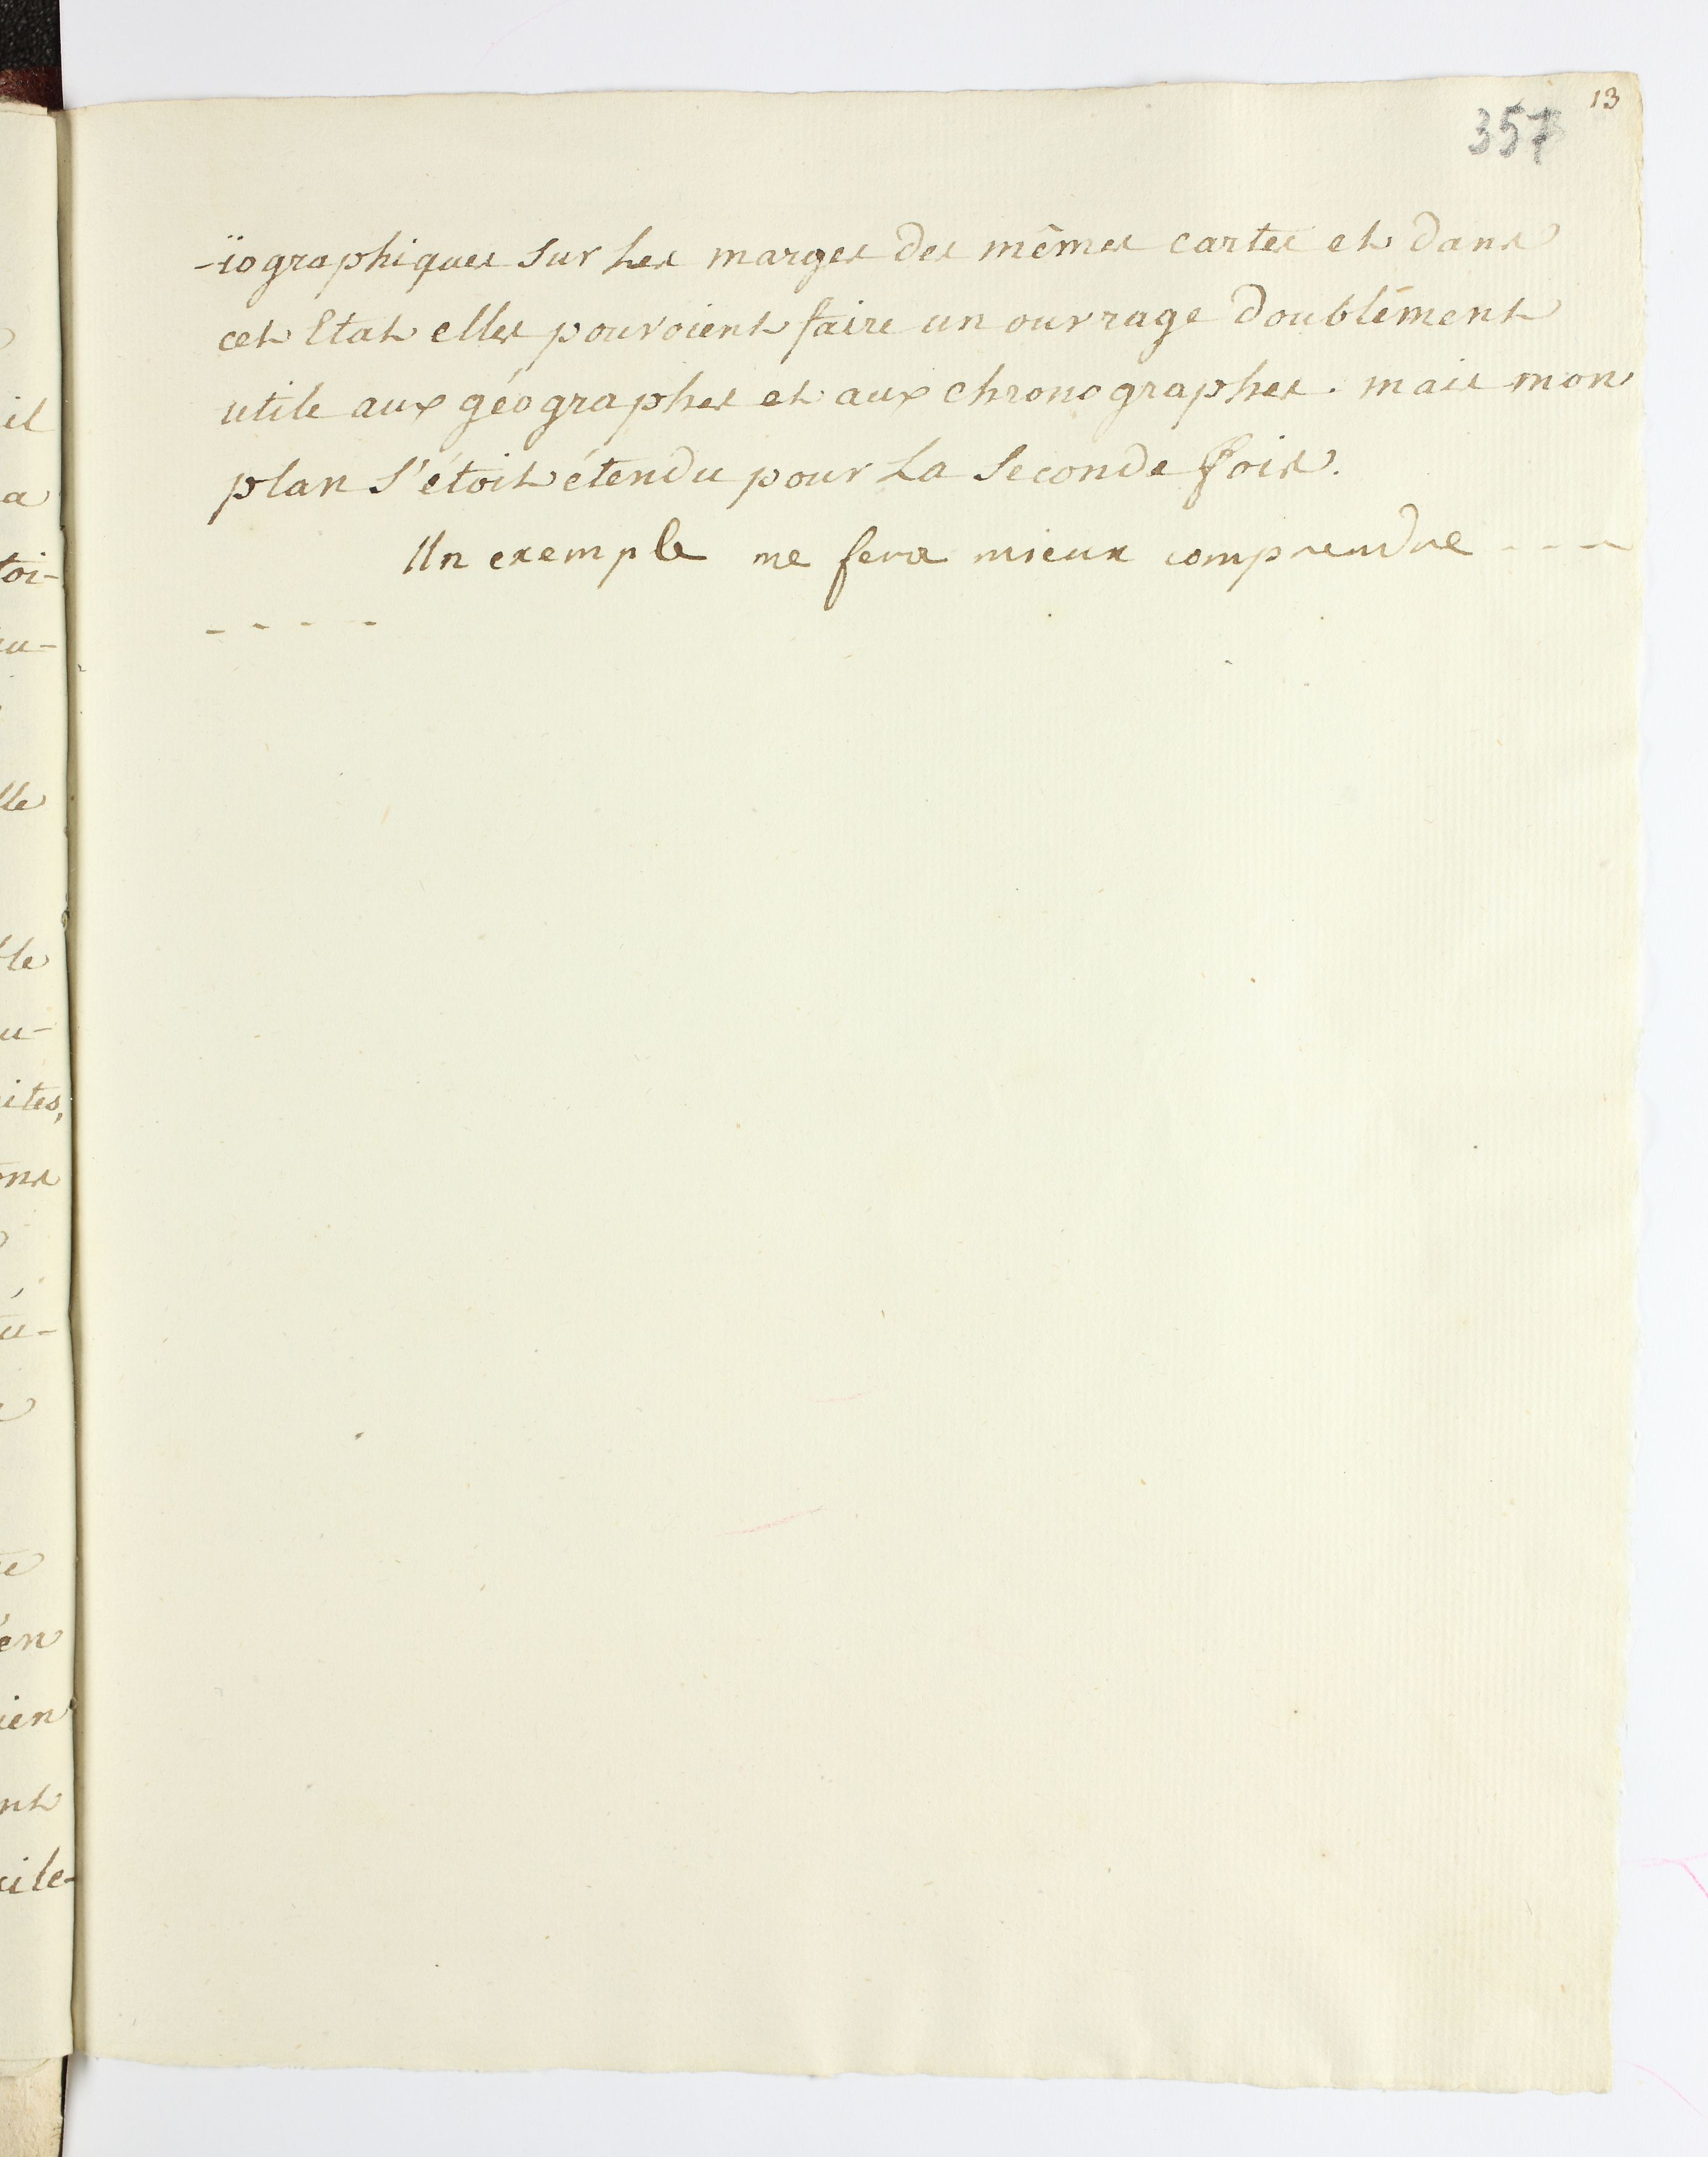 13
357
-ïographiques sur Les marges des mêmes cartes et dans
cet Etat elles pouroient faire un ouvrage doublément
utile aux géographes et aux chronographes. mais mon
plan s'étoit étendu pour La seconde fois.
Un exemple me fera mieux comprendre - - -
- - - -
il
a
toi-
u-
lle
le
u-
ites,
ons
u-
e
en
ien
nt
cile-